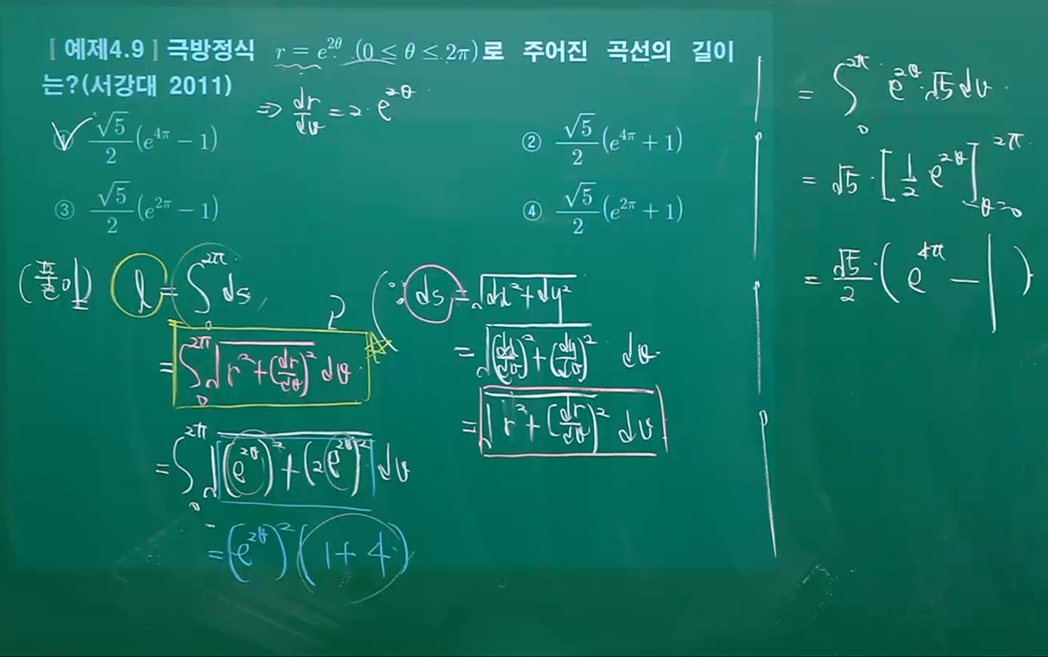 [예제4.9] 극방정식 r = e^{2θ} (0 ≤ θ ≤ 2π)로 주어진 곡선의 길이
는?(서강대 2011)
⇒ dr/dθ = 2·e^{2θ}
① √5/2 (e^{4π} − 1)
② √5/2 (e^{4π} + 1)
③ √5/2 (e^{2π} − 1)
④ √5/2 (e^{2π} + 1)
(풀이) l = ∫_0^{2π} ds
= ∫_0^{2π} √(r² + (dr/dθ)²) dθ
= ∫_0^{2π} √((e^{2θ})² + (2e^{2θ})²) dθ
= (e^{2θ})² (1 + 4)
(∵ ds = √(dx² + dy²)
= √((dx/dθ)² + (dy/dθ)²) dθ
= √(r² + (dr/dθ)²) dθ
= ∫_0^{2π} e^{2θ}·√5 dθ
= √5·[1/2 e^{2θ}]_{θ=0}^{2π}
= √5/2·(e^{4π} − 1)